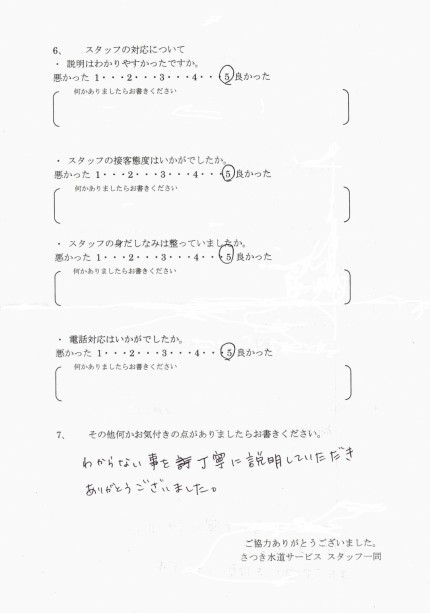 6、 スタッフの対応について
・ 説明はわかりやすかったですか。
悪かった 1・・・2・・・3・・・4・・・5 良かった
何かありましたらお書きください
・ スタッフの接客態度はいかがでしたか。
悪かった 1・・・2・・・3・・・4・・・5 良かった
何かありましたらお書きください
・ スタッフの身だしなみは整っていましたか。
悪かった 1・・・2・・・3・・・4・・・5 良かった
何かありましたらお書きください
・ 電話対応はいかがでしたか。
悪かった 1・・・2・・・3・・・4・・・5 良かった
何かありましたらお書きください
7、 その他何かお気付きの点がありましたらお書きください。
わからない事を丁寧に説明していただき
ありがとうございました。
ご協力ありがとうございました。
さつき水道サービス スタッフ一同